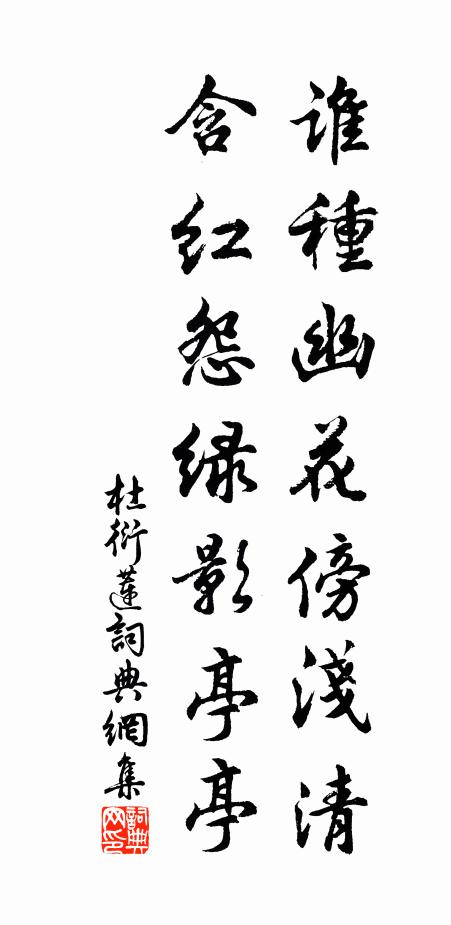 誰種幽花傍淺清
含紅怨緑影亭亭
杜衍蓮詞典網集
詞典网印